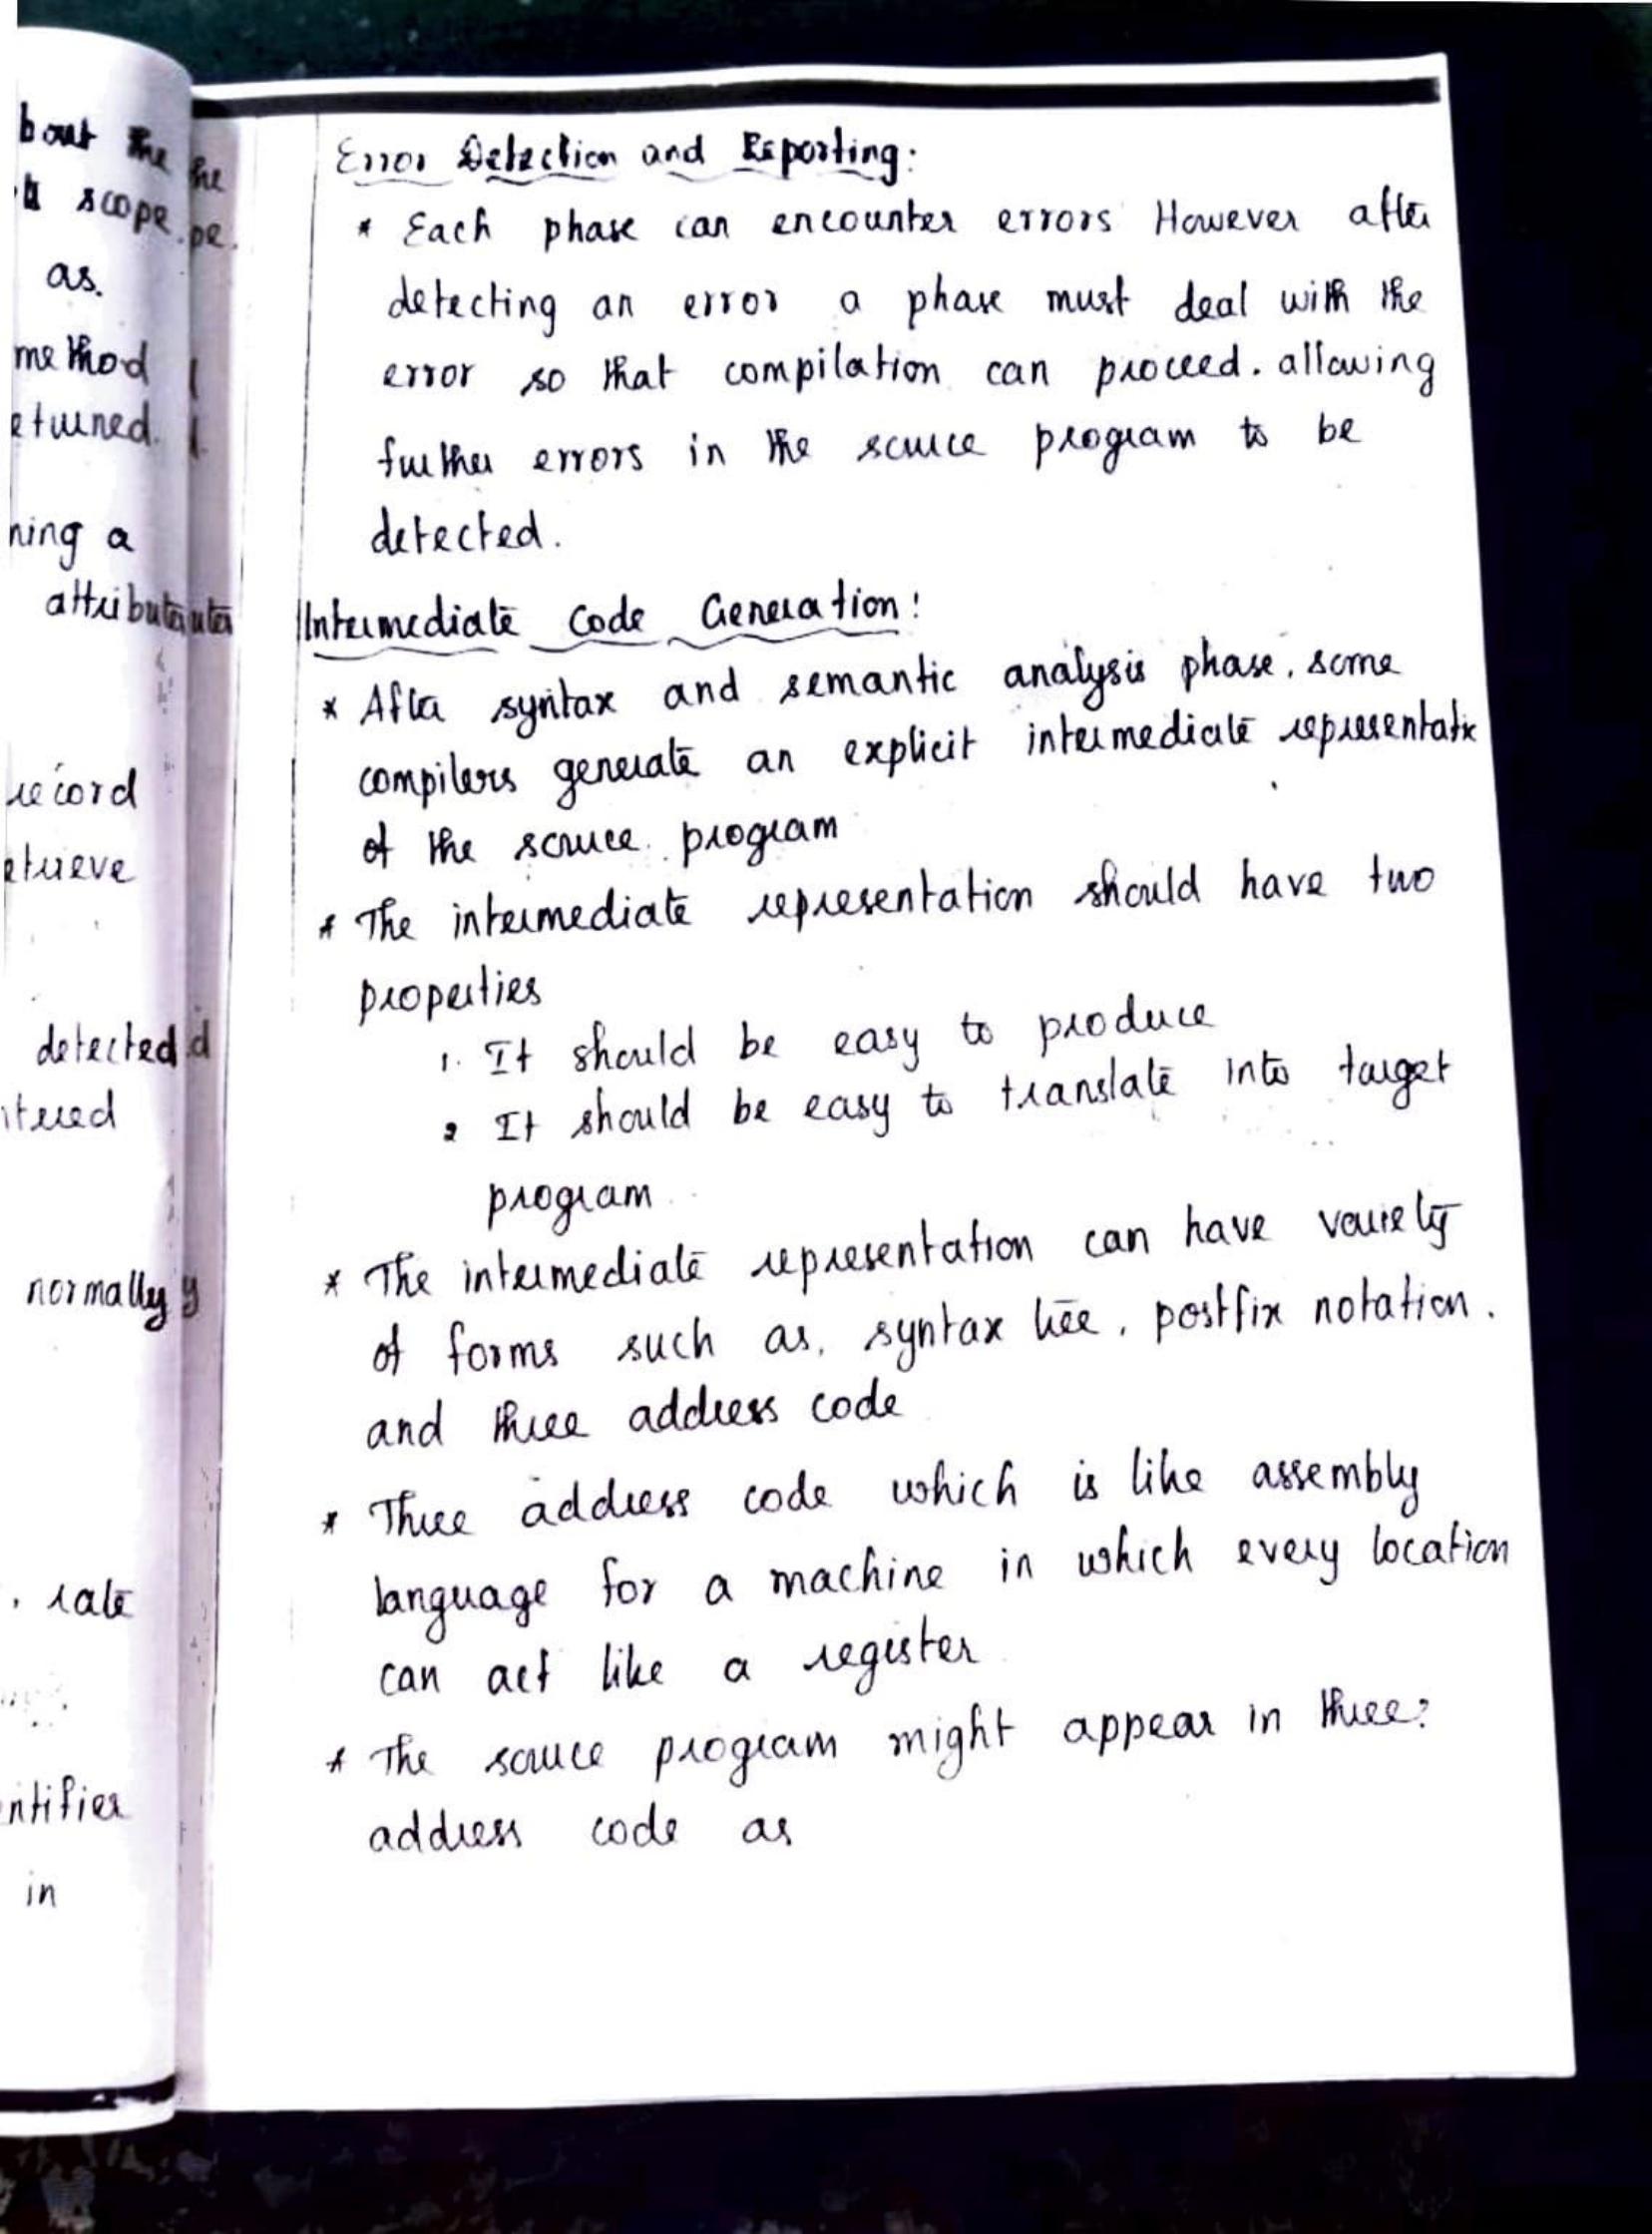 bout the he
scope. pe.
as.
method
eturned.
ning a
attribute ute
record
etrieve
detected d
itered
normally y
rate
ntifier
in
Error Detection and Reporting:
* Each phase can encounter errors However after
detecting an error a phase must deal with the
error so that compilation can proceed. allowing
further errors in the source program to be
detected.
Intermediate Code Generation:
* After syntax and semantic analysis phase, some
compilers generate an explicit intermediate representatio
of the source program
* The intermediate representation should have two
properties
1. It should be easy to produce
2 It should be easy to translate into target
program
* The intermediate representation can have variety
of forms such as, syntax tree, postfix notation.
and three address code
* Three address code which is like assembly
language for a machine in which every location
can act like a register
* The source program might appear in three:
address code as